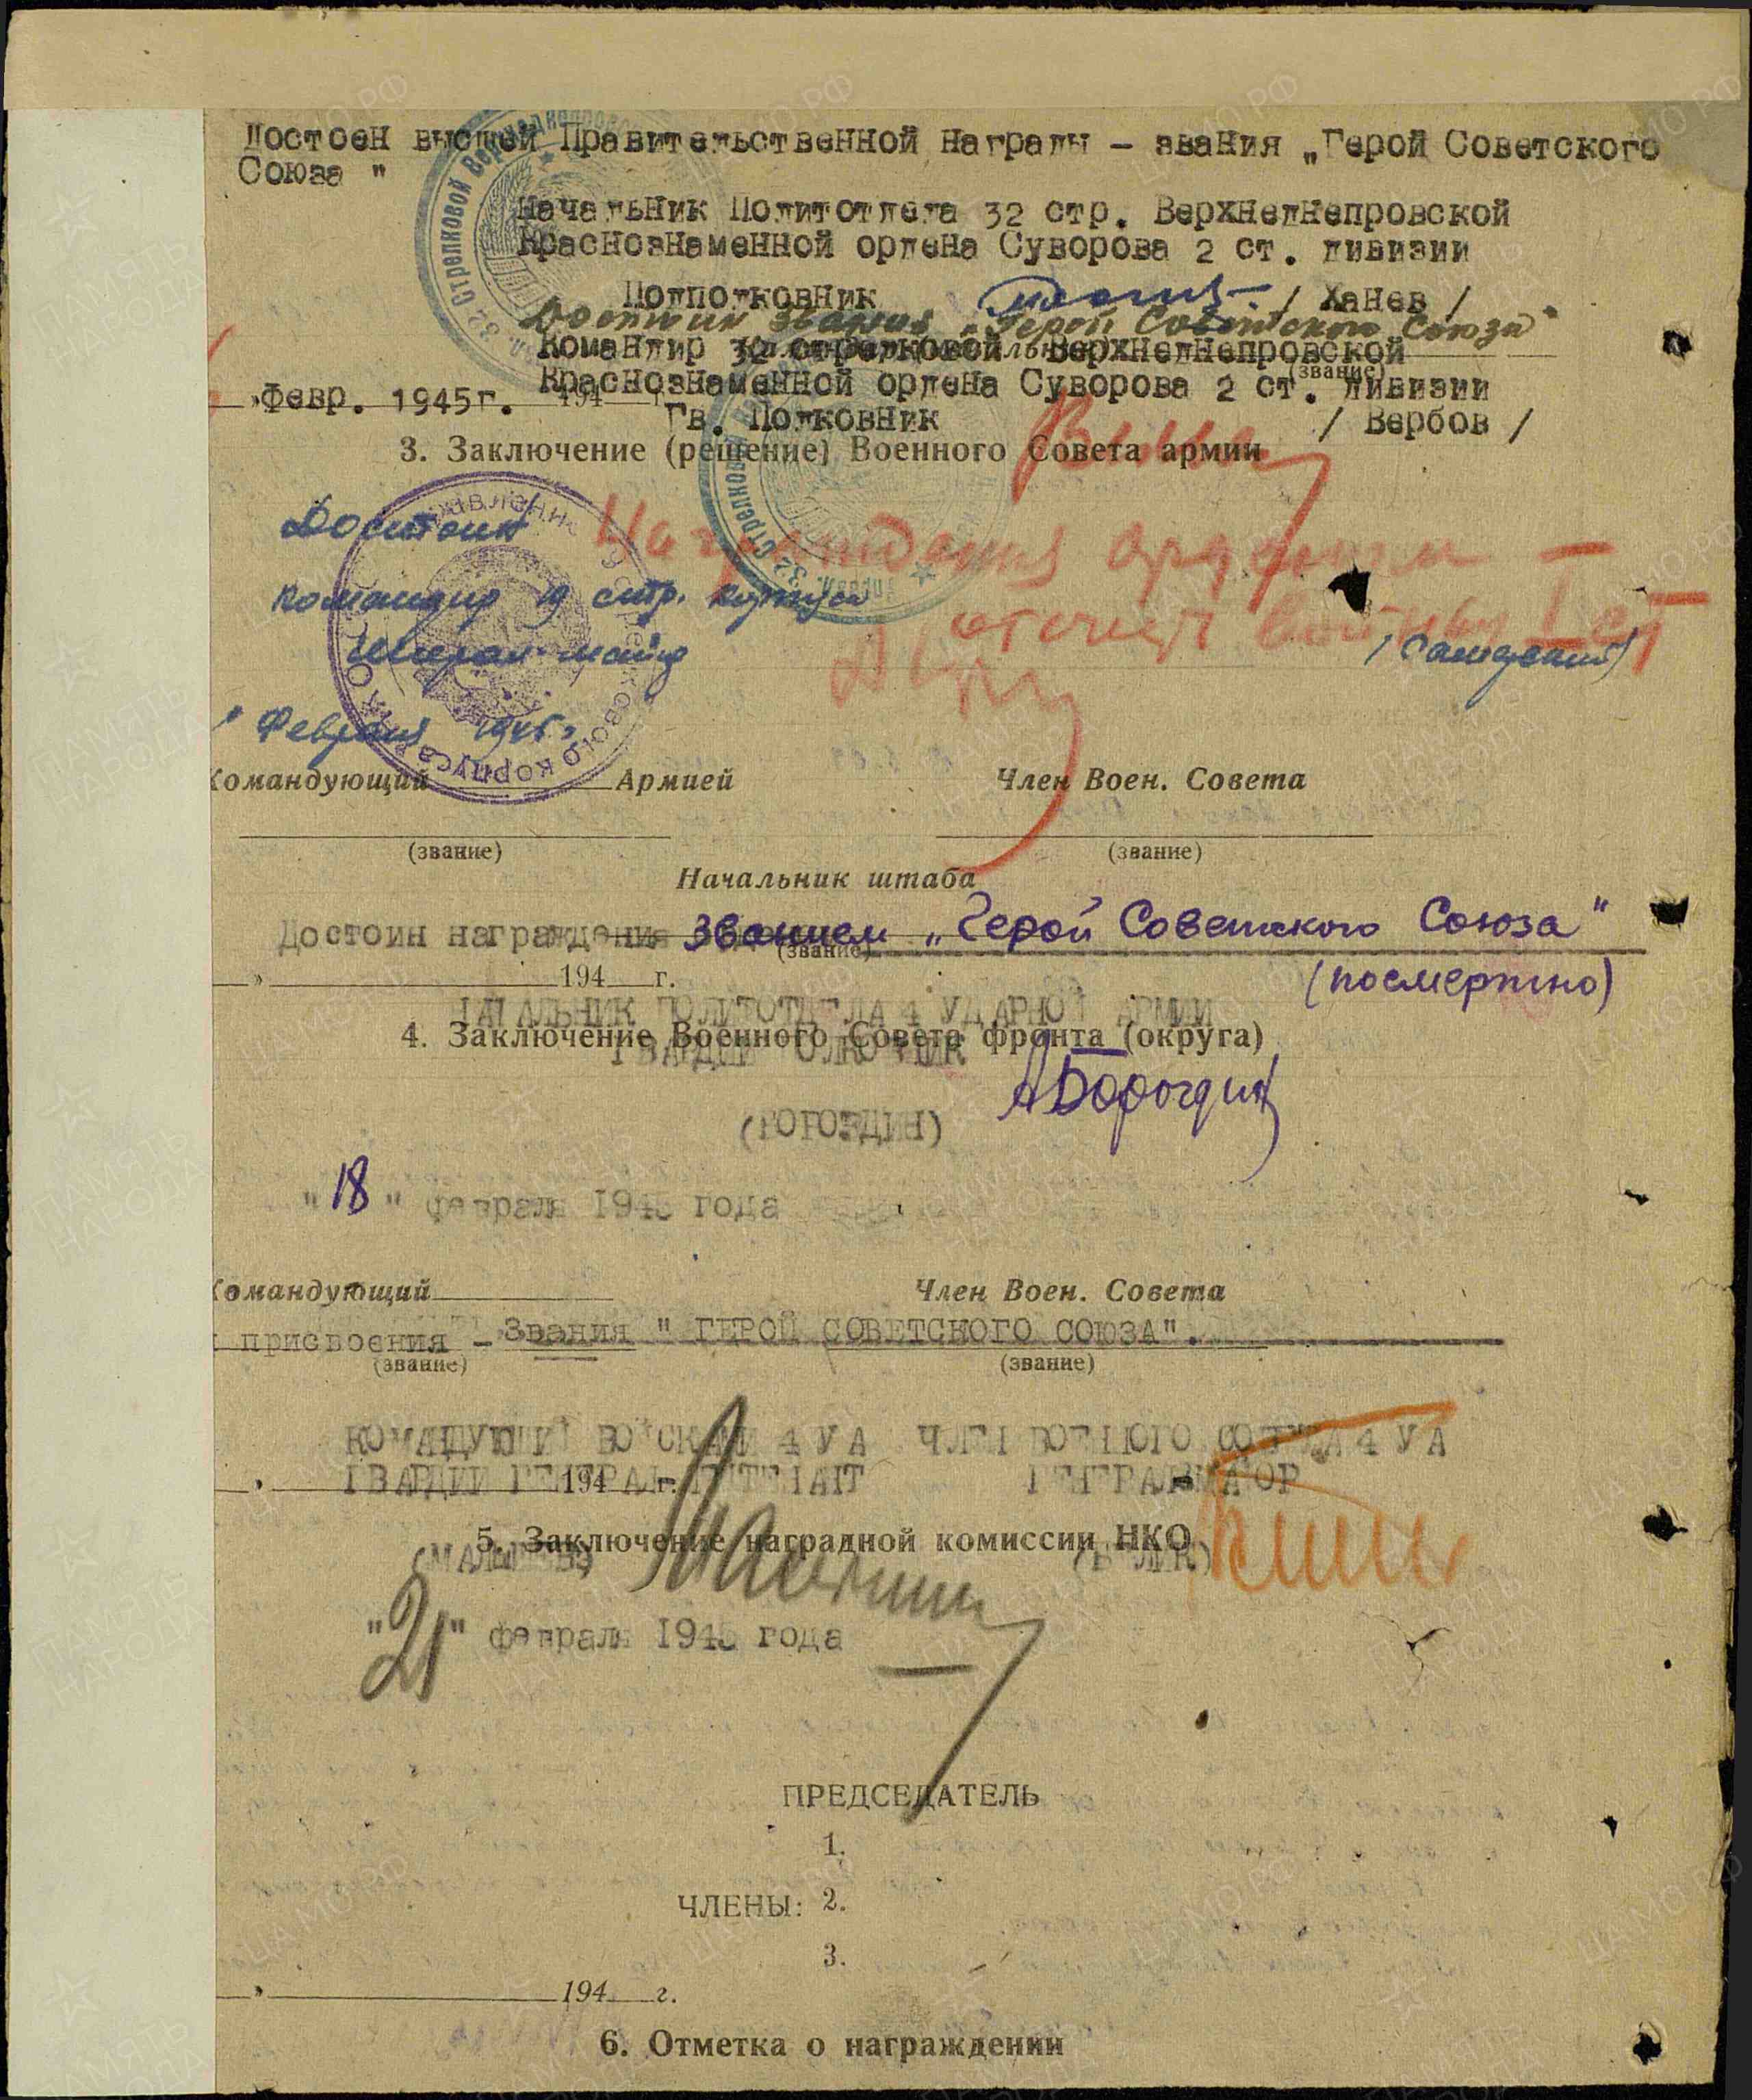 Достоен высшей Правительственной награды – звания „Герой Советского
Союза "
Начальник Политотдела 32 стр. Верхнеднепровской
Краснознаменной ордена Суворова 2 ст. дивизии
Подполковник / Ханев /
Достоин звания „Герой Советского Союза"
Командир 32 стрелковой Верхнеднепровской
(звание)
Краснознаменной ордена Суворова 2 ст. дивизии
" Февр. 1945г. 194 г.
Гв. Полковник / Вербов /
3. Заключение (решение) Военного Совета армии
Достоин
Награждения орденом
командир 19 стр. корпуса
отечест войны I ст
Генерал-майор
" Февраля 1945г.
Командующий Армией Член Воен. Совета
(звание) (звание)
Начальник штаба
Достоин награждения званием „Герой Советского Союза"
(звание)
" 194 г. (посмертно)
НАЧАЛЬНИК ПОЛИТОТДЕЛА 4 УДАРНОЙ АРМИИ
4. Заключение Военного Совета фронта (округа)
ГВАРДИИ ПОЛКОВНИК
(БОРОЗДИН)
"18" февраля 1945 года
Командующий Член Воен. Совета
присвоения – Звания " ГЕРОЙ СОВЕТСКОГО СОЮЗА".
(звание) (звание)
КОМАНДУЮЩИЙ ВОЙСКАМИ 4 УА ЧЛЕН ВОЕННОГО СОВЕТА 4 УА
ГВАРДИИ ГЕНЕРАЛ-ЛЕЙТЕНАНТ ГЕНЕРАЛ-МАЙОР
" 194 г.
5. Заключение наградной комиссии НКО
(МАЛЫШЕВ)
"21" февраля 1945 года
ПРЕДСЕДАТЕЛЬ
1.
ЧЛЕНЫ: 2.
3.
" 194 г.
6. Отметка о награждении